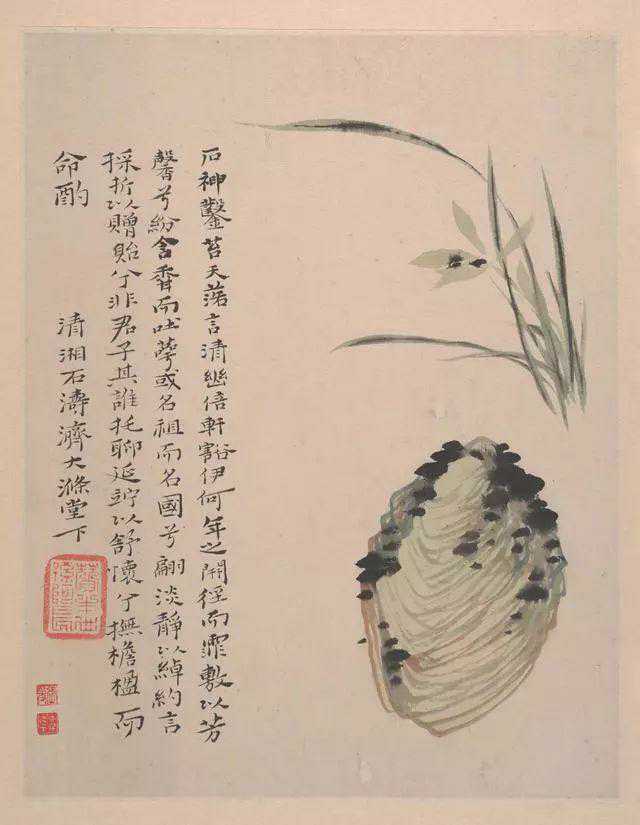 石神鑿苔天落言清倍軒豁伊何年之開徑而霏敷以芳
馨兮紛含香而吐萼或名祖而名國兮翩淡靜以綽約言
採折以贈貽兮非君子其誰托聊延竚以舒懷兮撫檐楹而
命酌
清湘石濤濟大滌堂下
贊之十世孫阿長